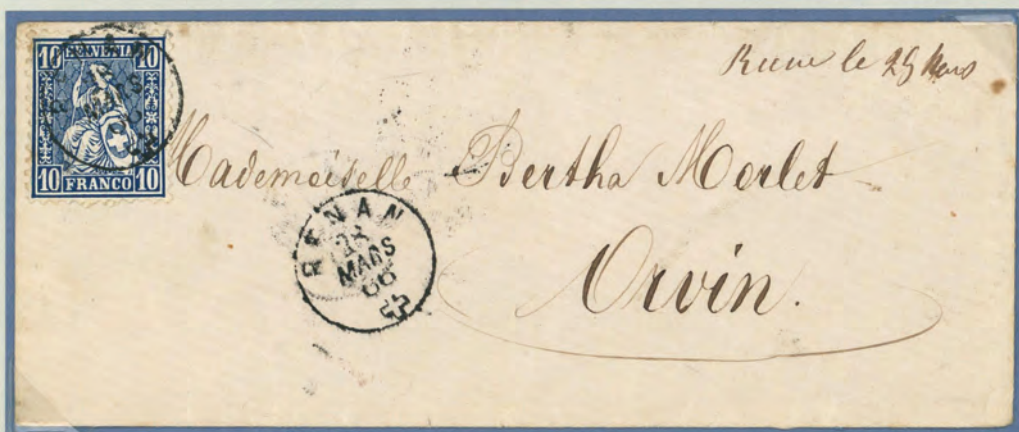 10 HELVETIA 10
10 FRANCO 10
le 29 Mars
Mademoiselle Bertha Morlet
Orvin.
RENAN
28
MARS
66